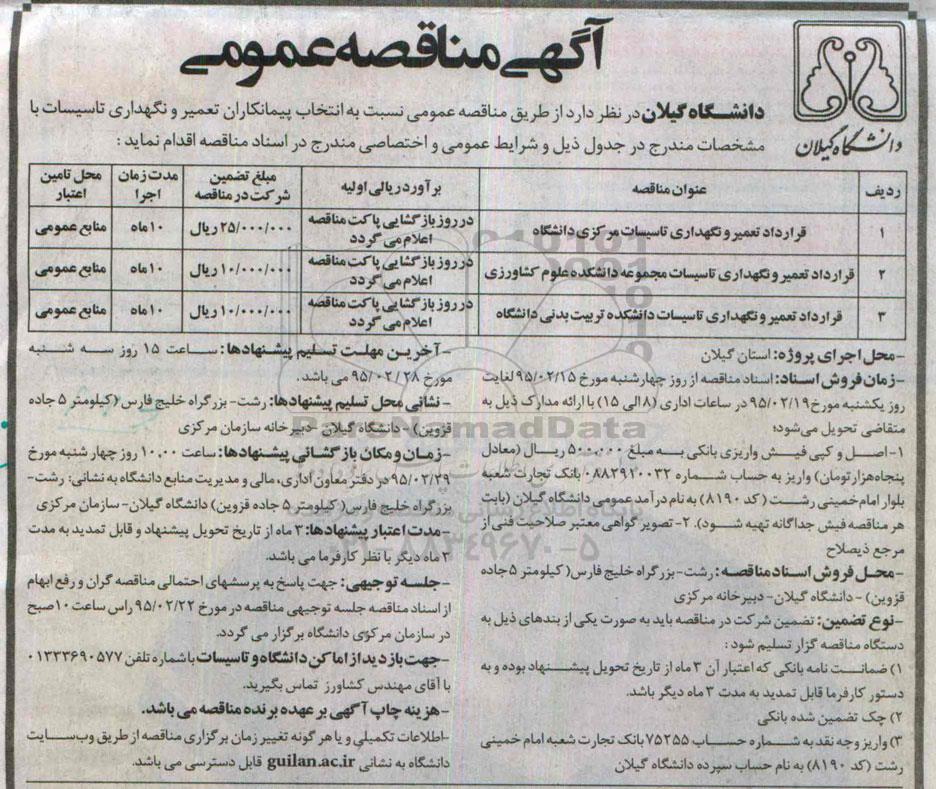 آگهی مناقصه عمومی
دانشگاه گیلان
دانشگاه گیلان در نظر دارد از طریق مناقصه عمومی نسبت به انتخاب پیمانکاران تعمیر و نگهداری تاسیسات با
مشخصات مندرج در جدول ذیل و شرایط عمومی و اختصاصی مندرج در اسناد مناقصه اقدام نماید :
ردیف عنوان مناقصه برآورد ریالی اولیه مبلغ تضمین شرکت در مناقصه مدت زمان اجرا محل تامین اعتبار
۱ قرارداد تعمیر و نگهداری تاسیسات مرکزی دانشگاه در روز بازگشایی پاکت مناقصه اعلام می گردد ۲۵/۰۰۰/۰۰۰ ریال ۱۰ ماه منابع عمومی
۲ قرارداد تعمیر و نگهداری تاسیسات مجموعه دانشکده علوم کشاورزی در روز بازگشایی پاکت مناقصه اعلام می گردد ۱۰/۰۰۰/۰۰۰ ریال ۱۰ ماه منابع عمومی
۳ قرارداد تعمیر و نگهداری تاسیسات دانشکده تربیت بدنی دانشگاه در روز بازگشایی پاکت مناقصه اعلام می گردد ۱۰/۰۰۰/۰۰۰ ریال ۱۰ ماه منابع عمومی
-محل اجرای پروژه: استان گیلان
-زمان فروش اسناد: اسناد مناقصه از روز چهارشنبه مورخ ۹۵/۰۲/۱۵ لغایت
روز یکشنبه مورخ ۹۵/۰۲/۱۹ در ساعات اداری (۸ الی ۱۵) با ارائه مدارک ذیل به
متقاضی تحویل می‌شود:
۱- اصل و کپی فیش واریزی بانکی به مبلغ ۵۰۰.۰۰۰ ریال (معادل
پنجاه هزار تومان) واریز به حساب شماره ۰۸۸۲۹۱۰۰۳۲ بانک تجارت شعبه
بلوار امام خمینی رشت (کد ۸۱۹۰) به نام درآمد عمومی دانشگاه گیلان (بابت
هر مناقصه فیش جداگانه تهیه شود). ۲- تصویر گواهی معتبر صلاحیت فنی از
مرجع ذیصلاح
-محل فروش اسناد مناقصه: رشت- بزرگراه خلیج فارس( کیلومتر ۵ جاده
قزوین) - دانشگاه گیلان- دبیرخانه مرکزی
-نوع تضمین: تضمین شرکت در مناقصه باید به صورت یکی از بندهای ذیل به
دستگاه مناقصه گزار تسلیم شود :
۱) ضمانت نامه بانکی که اعتبار آن ۳ ماه از تاریخ تحویل پیشنهاد بوده و به
دستور کارفرما قابل تمدید به مدت ۳ ماه دیگر باشد.
۲) چک تضمین شده بانکی
۳) واریز وجه نقد به شماره حساب ۷۵۲۵۵ بانک تجارت شعبه امام خمینی
رشت (کد ۸۱۹۰) به نام حساب سپرده دانشگاه گیلان
-آخرین مهلت تسلیم پیشنهادها: ساعت ۱۵ روز سه شنبه
مورخ ۹۵/۰۲/۲۸ می باشد .
- نشانی محل تسلیم پیشنهادها: رشت- بزرگراه خلیج فارس (کیلومتر ۵ جاده
قزوین) - دانشگاه گیلان- دبیرخانه سازمان مرکزی
-زمان و مکان بازگشائی پیشنهادها: ساعت ۱۰.۰۰ روز چهار شنبه مورخ
۹۵/۰۲/۲۹ در دفتر معاون اداری، مالی و مدیریت منابع دانشگاه به نشانی: رشت-
بزرگراه خلیج فارس( کیلومتر ۵ جاده قزوین) دانشگاه گیلان- سازمان مرکزی
-مدت اعتبار پیشنهادها: ۳ ماه از تاریخ تحویل پیشنهاد و قابل تمدید به مدت
۳ ماه دیگر با نظر کارفرما می باشد.
-جلسه توجیهی: جهت پاسخ به پرسشهای احتمالی مناقصه گران و رفع ابهام
از اسناد مناقصه جلسه توجیهی مناقصه در مورخ ۹۵/۰۲/۲۲ راس ساعت ۱۰ صبح
در سازمان مرکزی دانشگاه برگزار می گردد.
-جهت بازدید از اماکن دانشگاه و تاسیسات با شماره تلفن ۰۱۳۳۳۶۹۰۵۷۷
با آقای مهندس کشاورز تماس بگیرید.
-هزینه چاپ آگهی بر عهده برنده مناقصه می باشد.
-اطلاعات تکمیلی و یا هر گونه تغییر زمان برگزاری مناقصه از طریق وب سایت
دانشگاه به نشانی guilan.ac.ir قابل دسترسی می باشد.
ParsNamadData